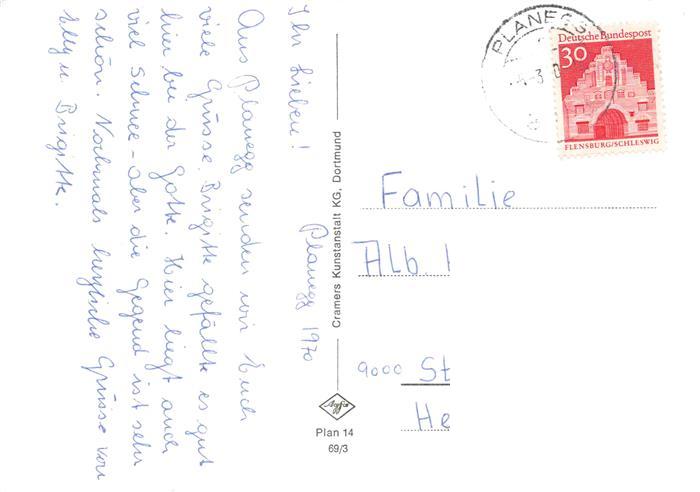 Planegg 1970
Ihr Lieben!
Aus Planegg senden wir Euch
viele Grüsse. Brigitte gefällts es gut
hier bei der Gotte. Hier liegt auch
viel Schnee - aber die Gegend ist sehr
schön. Nochmals herzliche Grüsse von
Elly u. Brigitte.
Cramers Kunstanstalt KG, Dortmund
Agfa
Plan 14
69/3
PLANEGG
Deutsche Bundespost
30
FLENSBURG/SCHLESWIG
Familie
Alb. I
9000 St
He